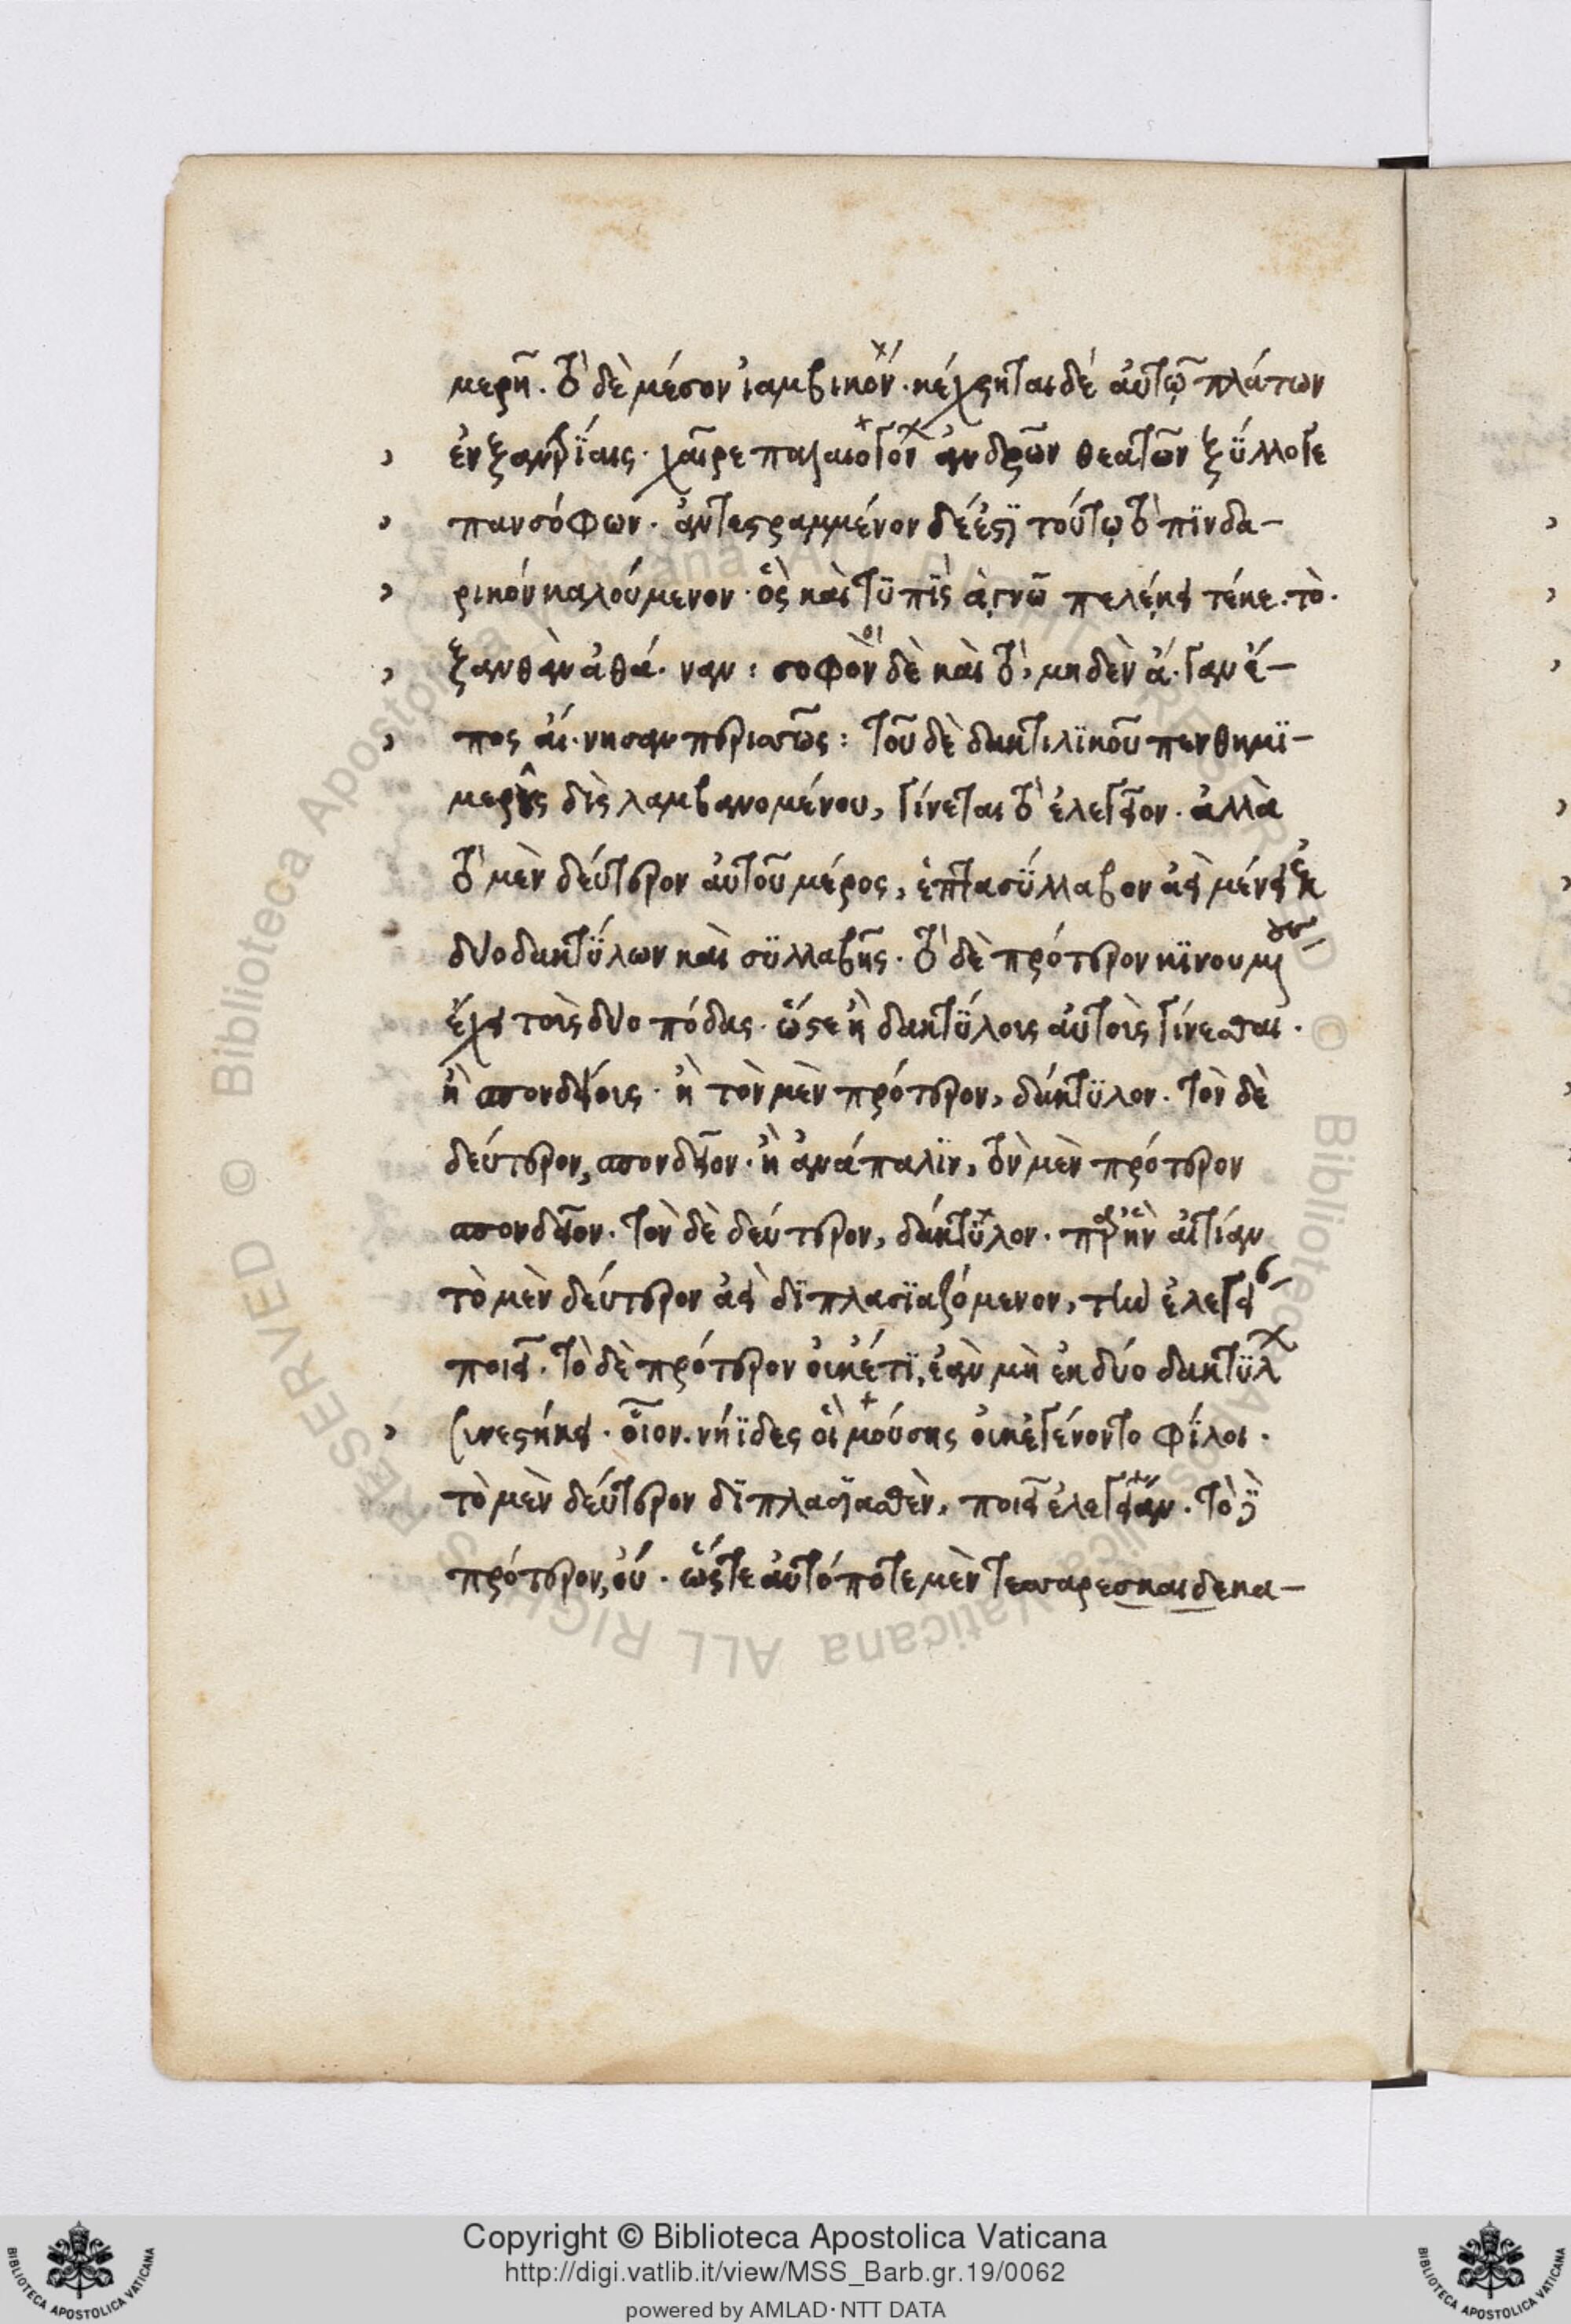 μερῆ. τὸ δὲ μέσον ἰαμβικόν. κέχρηται δὲ αὐτῷ πλάτων
ἐν ξαντρίαις. χαῖρε παλαιογόν ἀνδρῶν θεατῶν ξύλλογε
πανσόφων. ἀντεστραμμένον δέ ἐστι τούτῳ τὸ πϊνδα-
ρικόν καλούμενον. ὃς καὶ τϋπεὶς ἁγνῷ πελέκει τέκε. το.
ξανθὰν ἀθά. ναν: σοφοὶ δὲ καὶ τὸ, μηδὲν ἄ. γαν ἔ-
πος αἴ. νησαν περισσῶς: τοῦ δὲ δακτιλϊκοῦ πενθημϊ-
μεροῦς δὶς λαμβανομένου, γίνεται τὸ ἐλεγεῖον. ἀλλὰ
τὸ μὲν δεύτερον αὐτοῦ μέρος, ἑπτασύλλαβον ἀεὶ μένει ἐκ
δύο δακτύλων καὶ σϋλλαβῆς. τὸ δὲ πρότερον κϊνουμένους
ἔχει τοὺς δύο πόδας. ὥστε ἢ δακτύλους αὐτοὺς γίνεσθαι.
ἢ σπονδείους. ἢ τὸν μὲν πρότερον, δάκτϋλον. τὸν δὲ
δεύτερον, σπονδεῖον. ἢ ἀνάπαλϊν, τὸν μὲν πρότερον
σπονδεῖον. τὸν δὲ δεύτερον, δάκτϋλον. παρ' ἣν αἰτίαν
τὸ μὲν δεύτερον ἀεὶ δϊπλασϊαζόμενον, τὴν ἐλεγεί
ποιεῖ. τὸ δὲ πρότερον οὐκέτϊ, ἐὰν μὴ ἐκ δύο δακτϋλ
συνεστήκει. οἷον. νήϊδες οἳ μούσης οὐκ ἐγένοντο φίλοι.
τὸ μὲν δεύτερον δϊπλασϊασθὲν, ποιεῖ ἐλεγείαν. τὸ δὲ
πρότερον, οὐ. ὥστε αὐτό ποτε μὲν τεσσαρεσκαιδεκα-
Copyright © Biblioteca Apostolica Vaticana
http://digi.vatlib.it/view/MSS_Barb.gr.19/0062
powered by AMLAD·NTT DATA